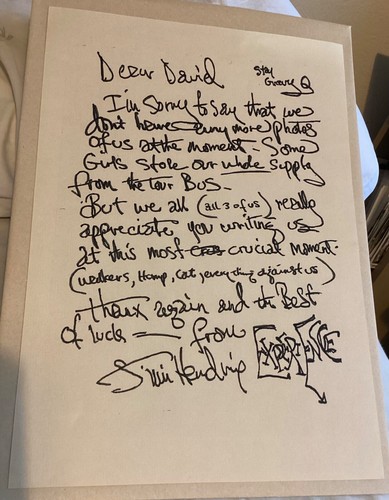 Dear David
Stay
Groovy
I'm Sorry to say that we
dont have any more photos
of us at the moment - Some
Girls Stole our whole Supply
from the tour Bus -
But we all (all 3 of us) really
appreciate you writing us
at this most crucial moment -
(walkers, Homp, Cat, everything against us)
Thanx again and the Best
of luck — from
Jimi Hendrix EXPERIENCE